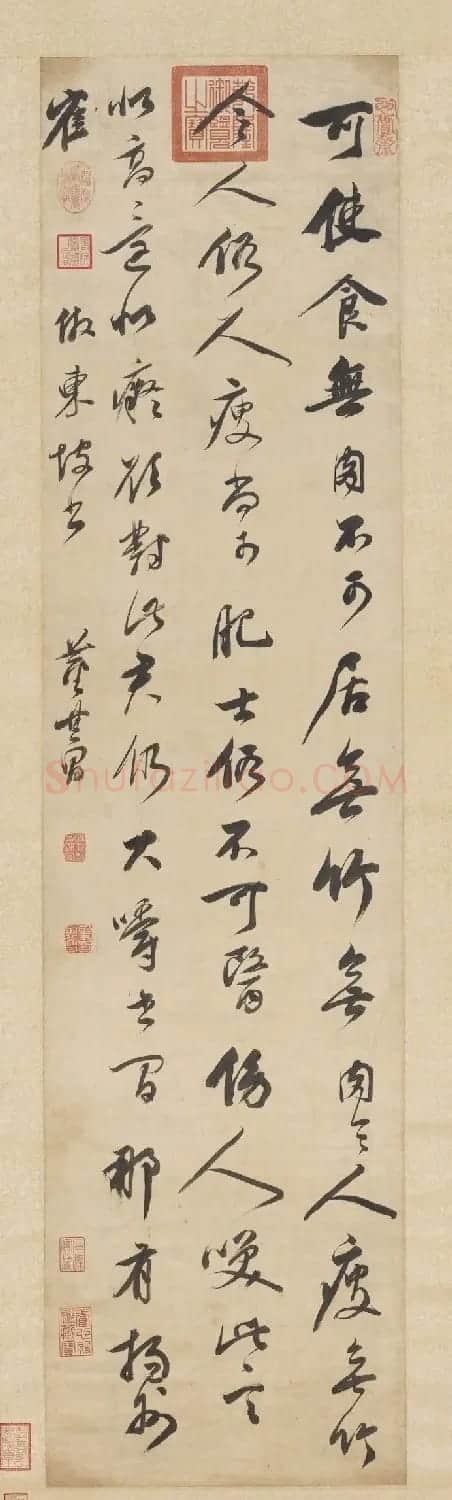 可使食無肉不可居無竹無肉令人瘦無竹
令人俗人瘦尚可肥士俗不可醫傍人咲此言
似高還似癡對此君仍大嚼世間那有揚州
隺
倣東坡書
董其昌
乾隆御覽之寶